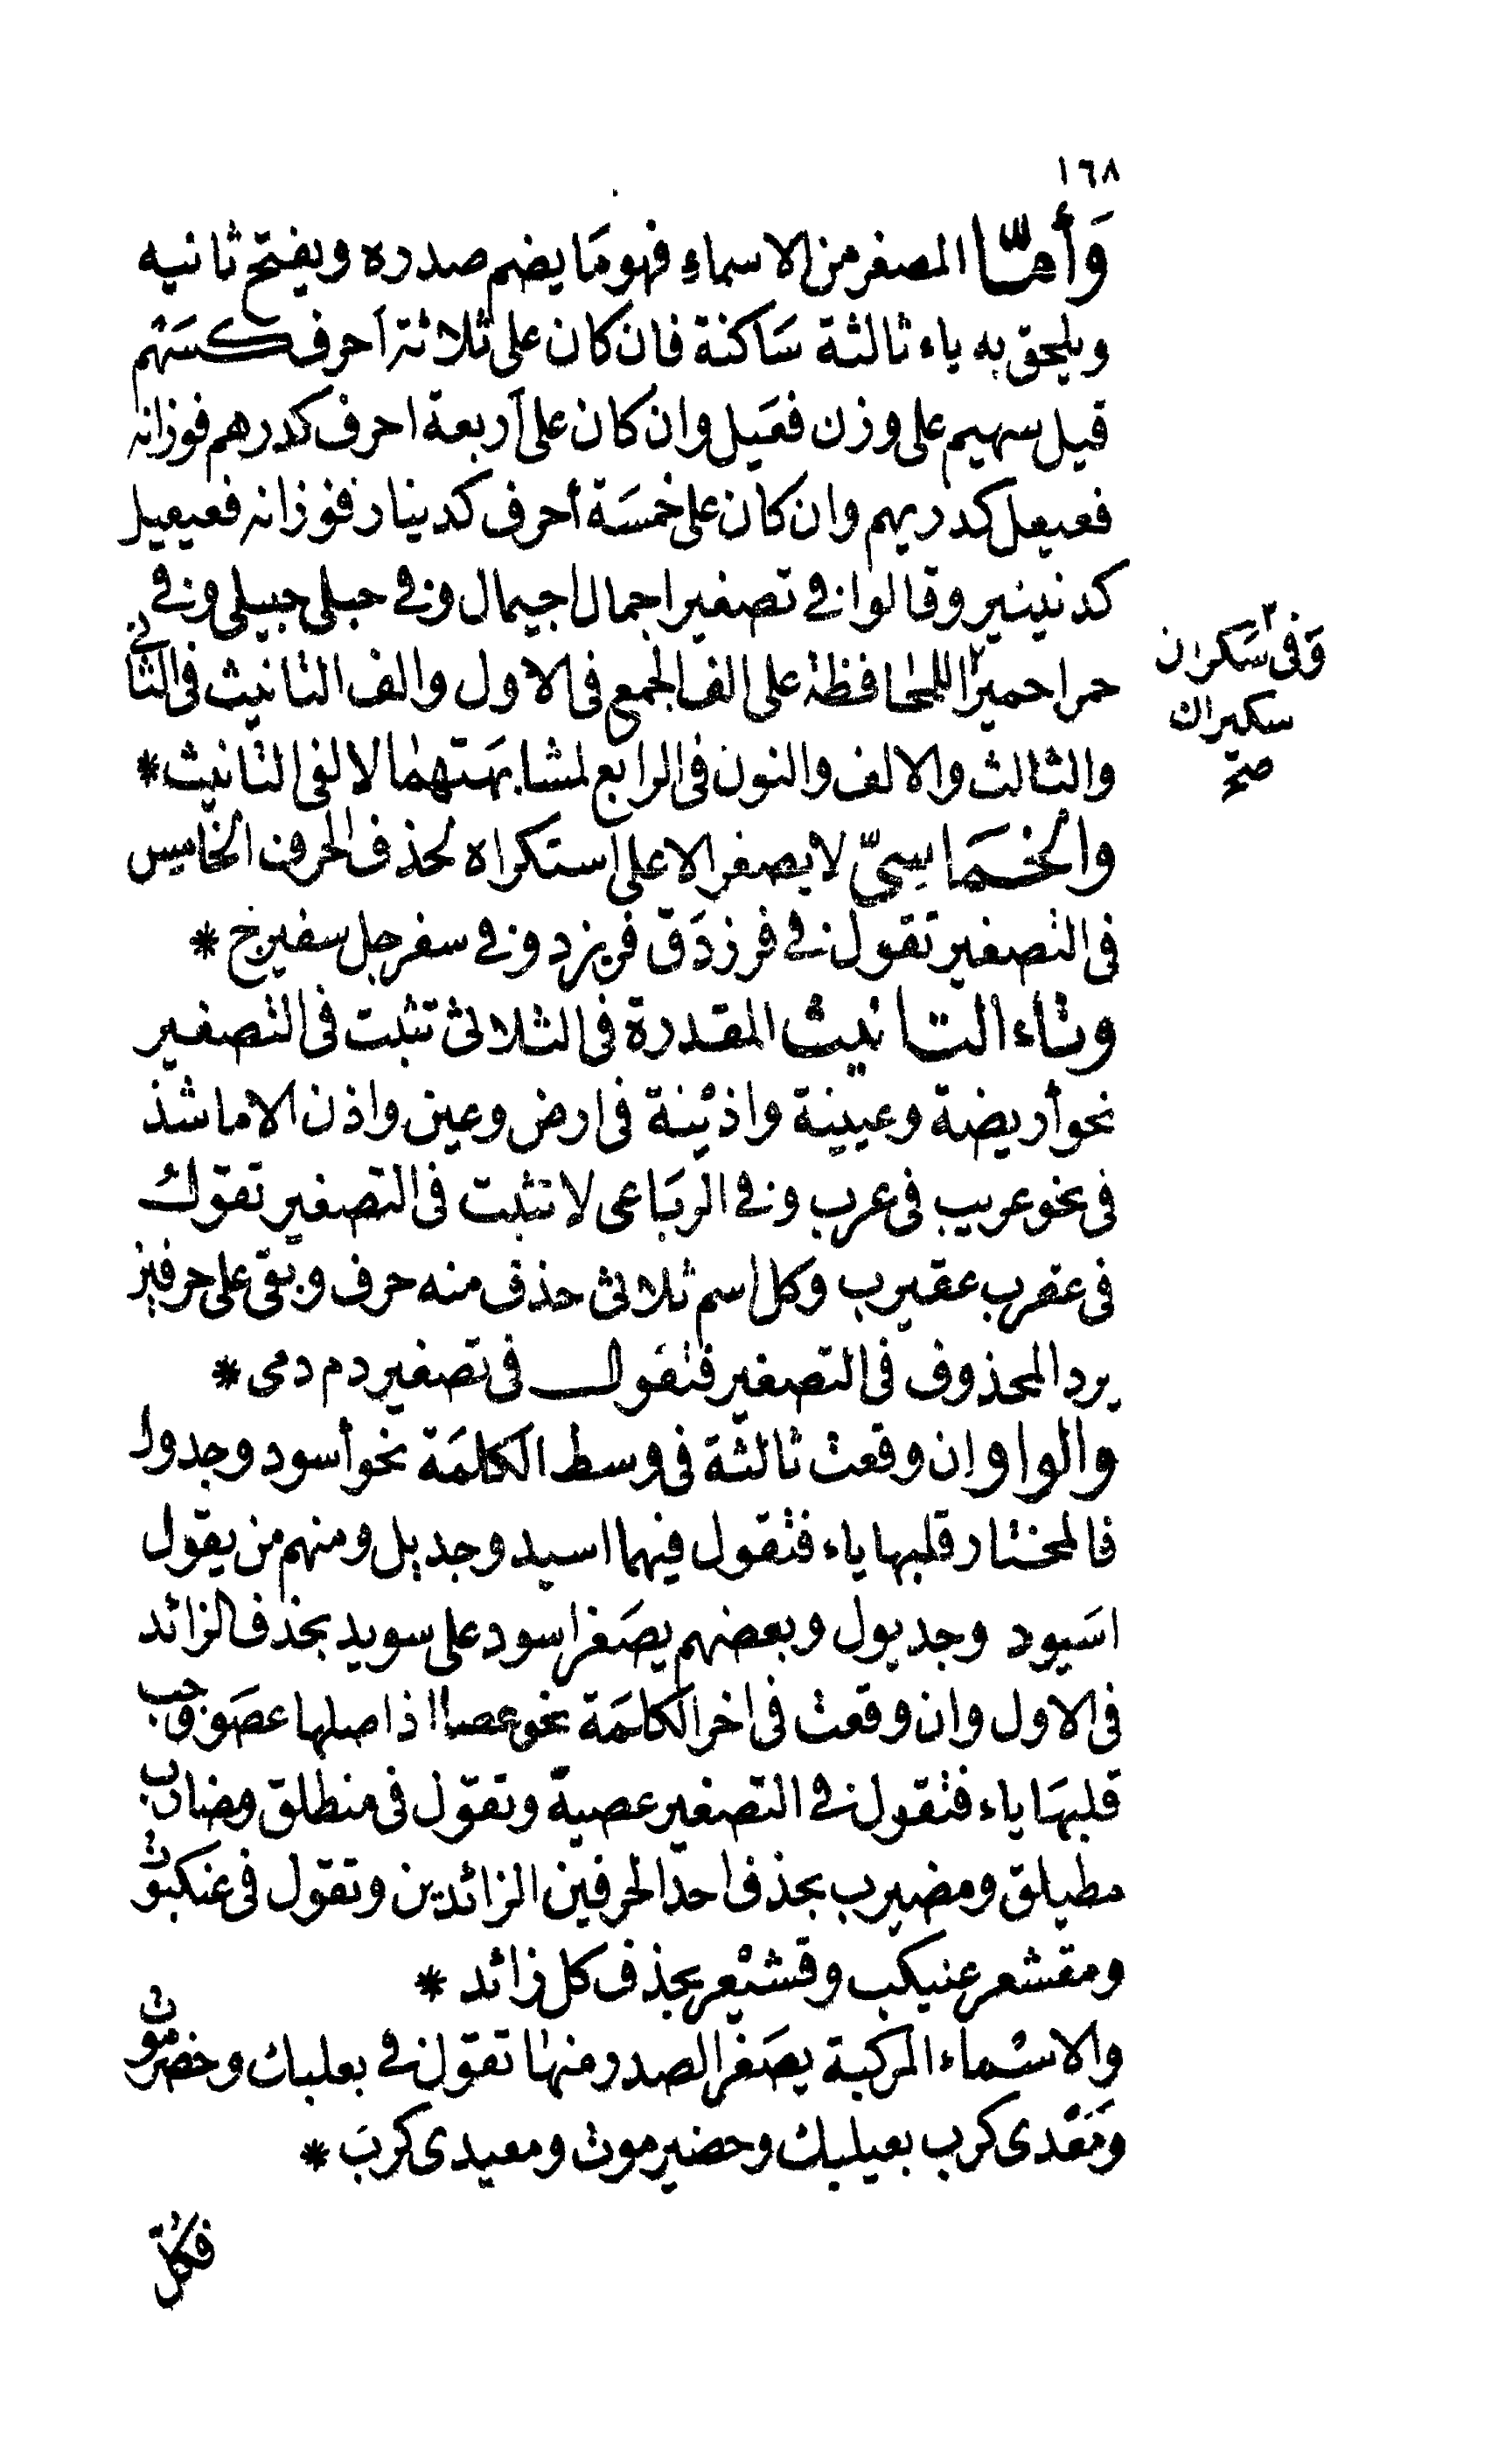 ١٦٨
وَأمّا المصغر من الاسماءِ فهو مَا يضم صدره ويفتح ثانيه
ويلحق به ياء ثالثة سَاكنة فان كان على ثلاثة اَحرف كسَهْم
قيل سهيم على وزن فعَيل وان كان على أربعة احرف كدرهم فوزانه
فعيعل كدريهم وان كان على خمسَة أحرف كدينار فوزانه فعيعيل
كدنينير وقالوا في تصغير اجمال اجيمال وفي حبلى حبيلى وفي
حمرا حميرا ٢ للمحافظة على الف الجمع في الاول والف التانيث في الثاني
والثالث والالف والنون في الرابع لمشابهَتهمَا لالفى التانيث *
والخمَاسِيّ لا يصغر الا على استكراه لحذف الحرف الخامِس
في التصغير تقول في فرزدَق فريزد وفي سفرجل سفيرج *
وتاء التانيث المقدرة في الثلاثى تثبت في التصغير
نحو أريضة وعيينة واذيْنة في ارض وعين واذن الا ما شذ
في نحو عريب في عرب وفي الربَاعى لا تثبت في التصغير تقول
في عقرب عقيرب وكل اسم ثلاثى حذف منه حرف وبقى على حرفين
يرد المحذوف في التصغير فتقول في تصغير دم دمى *
والواو ان وقعت ثالثة في وسط الكلمَة نحو أسود وجدول
فالمختار قلبها ياء فتقول فيهما اسيد وجديل ومنهم من يقول
اسَيود وجديول وبعضهم يصَغر اسود على سويد بحذف الزائد
في الاول وان وقعت في اخر الكلمَة نحو عصا اذ اصلها عصَو وجب
قلبهَا ياء فتقول في التصغير عصية وتقوّل في منطلق ومضارب
مطيلق ومضيرب بحذف احد الحرفين الزائدين وتقول في عنكبوت
ومقشعر عنيكب وقشيْعر بحذف كل زائد *
والاسْماء المركبة يصَغر الصدر منهَا تقول في بعلبك وحضرموت
ومَعْدى كرب بعيلبك وحضيرموت ومعيدى كربَ *
فكلّ
٢ وَفي سَكران
سكيران
صح